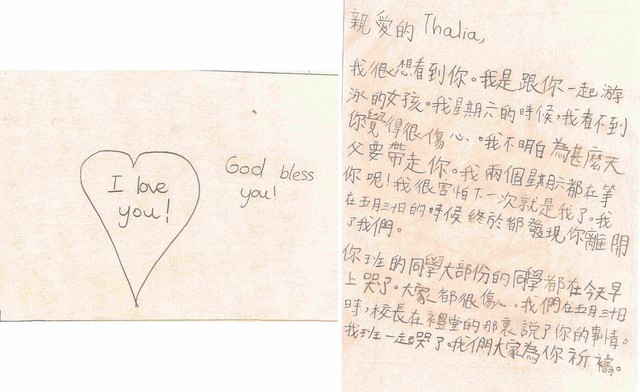 I love
you!
God bless
you!
親愛的 Thalia,
我很想看到你。我是跟你一起游
泳的女孩。我星期六的時候,我看不到
你覺得很傷心。我不明白為甚麼天
父要帶走你。我兩個星期六都在等
你呢!我很害怕下一次就是我了。我
在五月三日的時候終於都發現你離開
了我們。
你班的同學大部份的同學都在今天早
上哭了。大家都很傷心。我們在五月三十日
時,校長在禮堂的那裏說了你的事情。
我班一起哭了。我們大家為你祈禱。